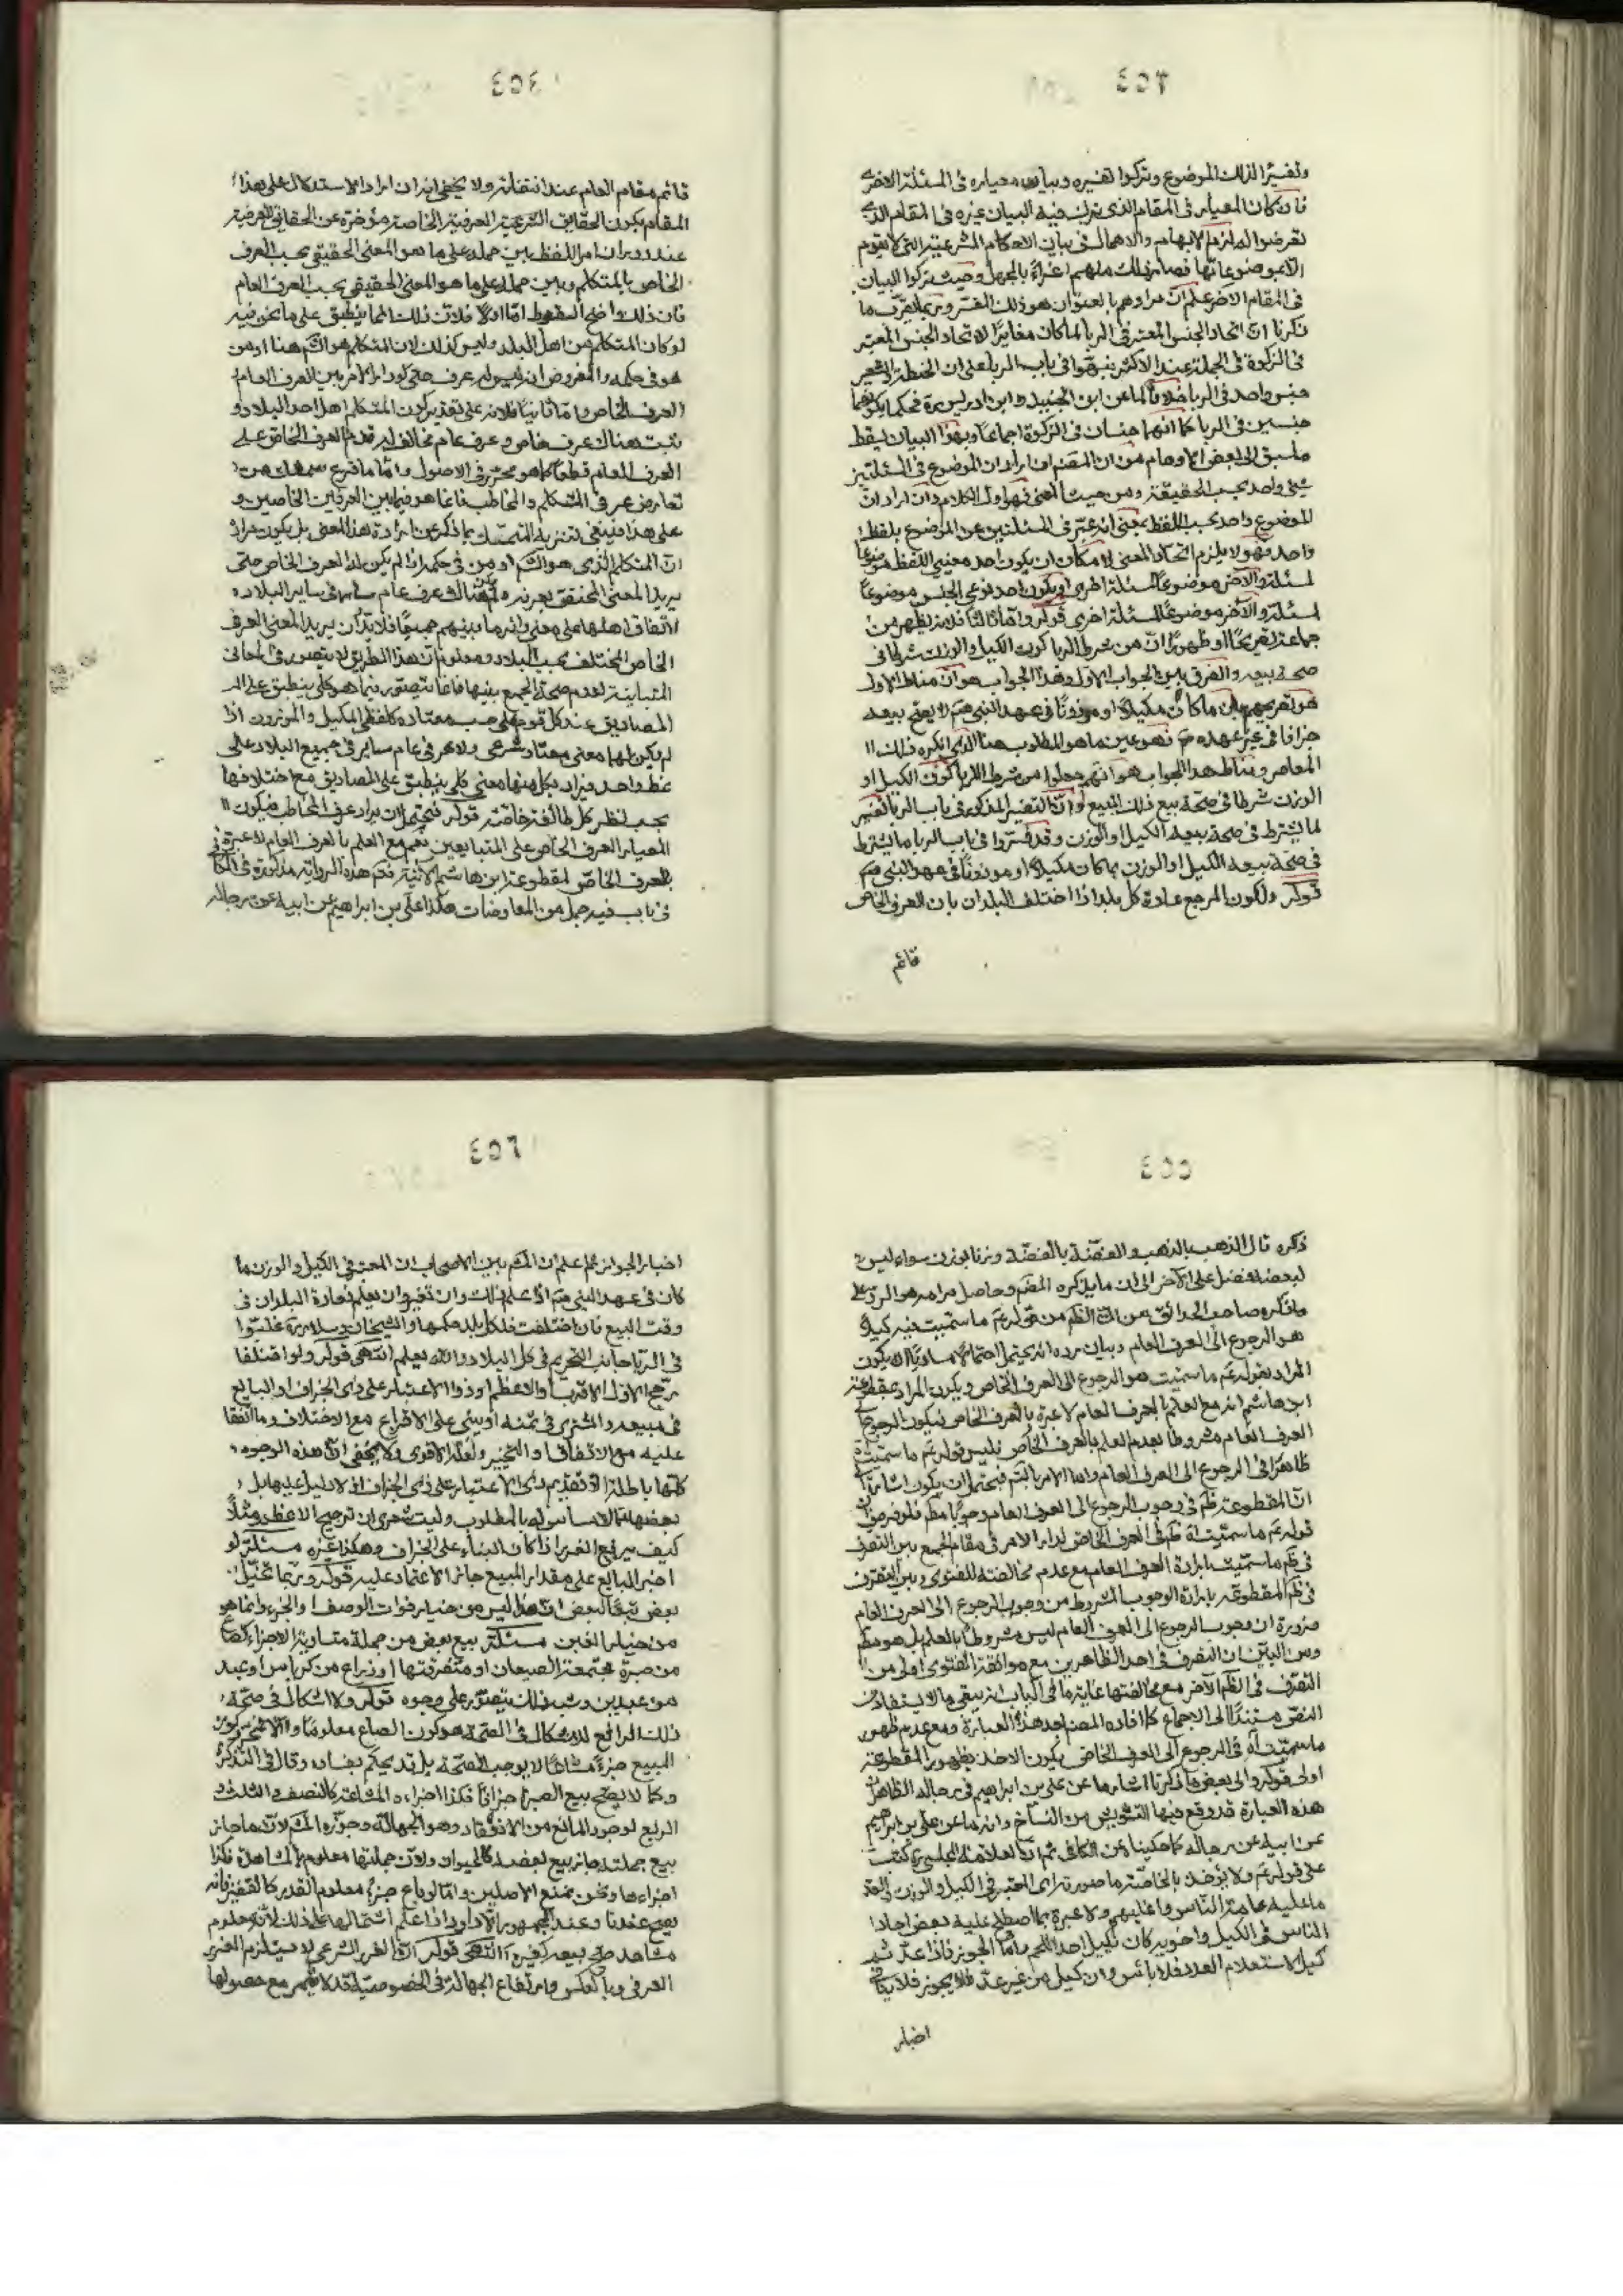 ٤٥٣
وتفسيرا لذلك الموضوع وتركوا تفسيره وبيان معياره في المسئلة الاخرى
فان كان المعيار في المقام الذي ترك فيه البيان غيره في المقام الذي
تعرضوا له لزم الابهام والاهمال في بيان الاحكام الشرعية التي لا تقوم
الا بموضوعاتها فصار ذلك منهم اغراء بالجهل وحيث تركوا البيان
في المقام الاخر علم ان مرادهم بالعنوان هو ذلك المفسر وربما يقرب ما
ذكرنا ان اتحاد الجنس المعتبر في الربا لما كان مغايرا لاتحاد الجنس المعتبر
في الزكوة في الجملة عند الاكثر نبهوا في باب الربا على ان الحنطة والشعير
جنس واحد في الربا خلافا لما عن ابن الجنيد وابن ادريس ره فحكما بكونهما
جنسين في الربا كما انهما جنسان في الزكوة اجماعا وبهذا البيان يسقط
ما سبق الى بعض الاوهام من ان المصنف ان اراد ان الموضوع في المسئلتين
شئ واحد بحسب الحقيقة ومن حيث المعنى فهو اول الكلام وان اراد ان
الموضوع واحد بحسب اللفظ بمعنى انه عبر في المسئلتين عن الموضوع بلفظ
واحد فهو لا يلزم اتحاد المعنى لامكان ان يكون احد معنيي اللفظ موضوعا
لمسئلة والاخر موضوعا لمسئلة اخرى او يكون احد نوعي الجنس موضوعا
لمسئلة والاخر موضوعا لمسئلة اخرى قوله واما ثالثا فلانه يظهر من
جماعة تصريحا او ظهورا ان من شرط الربا كون الكيل والوزن شرطا في
صحة بيعه والفرق بين الجواب الاول وهذا الجواب هو ان مناط الاول
هو تصريحهم بان ما كان مكيلا او موزونا في عهد النبي صم لا يصح بيعه
جزافا في غير عهده ص فهو عين ما هو المطلوب هنا الذي انكره ذلك
المعاصر ومناط هذا الجواب هو انهم جعلوا من شرط الربا كون الكيل او
الوزن شرطا في صحة بيع ذلك المبيع وان التفسير المذكور في باب الربا تفسير
لما يشترط في صحة بيعه الكيل او الوزن وقد فسروا في باب الربا ما يشترط
في صحة بيعه الكيل او الوزن بما كان مكيلا او موزونا في عهد النبي صم
قوله ولكون المرجع عادة كل بلد اذا اختلف البلدان بان العرف الخاص
قائم
٤٥٤
قائم مقام العام عند انتفائه ولا يخفى انه ان اراد الاستدلال على هذا
المقام بكون الحقايق الشرعية العرفية الخاصة مؤخرة عن الحقايق العرفية
عند دوران امر اللفظ بين حمله على ما هو المعنى الحقيقي بحسب العرف
الخاص بالمتكلم وبين حمله على ما هو المعنى الحقيقي بحسب العرف العام
فان ذلك واضح السقوط اما اولا فلان ذلك انما ينطبق على ما نحن فيه
لو كان المتكلم من اهل البلد وليس كذلك لان المتكلم هو الشم هنا او من
هو في حكمه والمفروض انه ليس له عرف حتى يدور الامر بين العرف العام
العرف الخاص واما ثانيا فلانه على تقدير كون المتكلم اهل احد البلاد و
ثبت هناك عرف خاص وعرف عام مخالف له قدم العرف الخاص على
العرف العام قطعا كما هو محرر في الاصول واما ما قرع سمعك من
تعارض عرف المتكلم والمخاطب فانما هو فيما بين العرفين الخاصين و
على هذا فينبغي تنزيه المتمسك بما ذكر عن ارادة هذا المعنى بل يكون مراده
ان المتكلم الذي هو الشم او من في حكمه اذا لم يكن له العرف الخاص حتى
يريد المعنى المتحقق بعرفه ولم يكن هناك عرف عام سار في ساير البلاد
لاتفاق اهلها على معنى دائر ما بينهم جميعا فلا بد ان يريد المعنى العرف
الخاص المختلف بحسب البلاد ومعلوم ان هذا الطريق لا يتصور في المعاني
المتباينة لعدم صحة الجمع بينها فانما يتصور فيما هو كلي ينطبق على
المصاديق عند كل قوم على حسب معتاده كلفظي المكيل والموزون اذا
لم يكن لهما معنى معتاد شرعي ولا عرفي عام ساير في جميع البلاد على
نمط واحد فيراد بكل منهما معنى كلي ينطبق على المصاديق مع اختلافها
بحسب نظر كل طائفة خاصة قوله فيحتمل ان يراد عرف المخاطب فيكون
المعيار العرف الخاص على المتبايعين نعم مع العلم بالعرف العام لا عبرة في
بالعرف الخاص لمقطوعة ابن هاشم الاتية فتم هذه الرواية مذكورة في الكافي
في باب فيه جمل من المعاوضات هكذا علي بن ابراهيم عن ابيه عن رجاله
٤٥٥
ذكره قال الذهب بالذهب والفضة بالفضة وزنا بوزن سواء ليس
لبعضه فضل على الاخر الى ان ما يذكره المصنف وحاصل مرامه هو الرد على
ما ذكره صاحب الحدائق من ان الظم من قوله عم ما سميت فيه كيلا
هو الرجوع الى العرف العام وبيان رده انه يحتمل احتمالا مساويا ان يكون
المراد بقوله عم ما سميت هو الرجوع الى العرف الخاص ويكون المراد بمقطوعة
ابن هاشم انه مع العلم بالعرف العام لا عبرة بالعرف الخاص فيكون الرجوع الى
العرف العام مشروطا بعدم العلم بالعرف الخاص فليس قوله عم ما سميت اه
ظاهرا في الرجوع الى العرف العام واما الامر بالتم فيحتمل ان يكون اشارة الى
ان المقطوعة ظم في وجوب الرجوع الى العرف العام وجوبا مطم فلو فرض ان
قوله عم ما سميت اه ظم في العرف الخاص لدار الامر في مقام الجمع بين التصرف
في ظم ما سميت بارادة العرف العام مع عدم مخالفته للفتوى وبين التصرف
في ظم المقطوعة بارادة الوجوب المشروط من وجوب الرجوع الى العرف العام
ضرورة ان وجوب الرجوع الى العرف العام ليس مشروطا بالعلم بل هو مطم
ومن البين ان التصرف في احد الظاهرين مع موافقة الفتوى اولى من
التصرف في الظم الاخر مع مخالفتها غاية ما في الباب انه يبقى ما لا يستفاد من
النص مستندا الى الاجماع كما افاده المصنف بعد هذه العبارة ومع عدم ظهور
ما سميت اه في الرجوع الى العرف الخاص يكون الاخذ بظهور المقطوعة
اولى قوله والى بعض ما ذكرنا اشار ما عن علي بن ابراهيم في رجاله الظاهر ان
هذه العبارة قد وقع فيها التشويش من النساخ وانه ما عن علي بن ابراهيم
عن ابيه عن رجاله كما حكينا عن الكافي ثم ان العلامة المجلسي ره كتب
على قوله عم ولا يؤخذ بالخاصة ما صورته اي المعتبر في الكيل والوزن والعد
ما عليه عامة الناس واغلبهم ولا عبرة بما اصطلح عليه بعض احاد
الناس في الكيل واخويه كان يكيل احد اللحم واما الجوز فاذا عد ثم
كيل لاستعلام العدد فلا بأس وان كيل من غير عد فلا يجوز فلا ينافي
اخبار
٤٥٦
اخبار الجواز ثم اعلم ان المشم بين الاصحاب ان المعتبر في الكيل والوزن ما
كان في عهد النبي صم اذا علم ذلك وان تغير وان يعلم فعادة البلدان في
وقت البيع فان اختلفت فلكل بلد حكمها والشيخان وسلار ره غلبوا
في الربا جانب التحريم في كل البلاد والله يعلم انتهى قوله ولو اختلفا
رجح الاول الاقرب او الاعظم او ذو الاعتبار على ذي الجزاف او البايع
في مبيعه والمشتري في ثمنه او يبنى على الاقراع مع الاختلاف وما اتفقا
عليه مع الاتفاق او التخيير ولعله الاقوى ولا يخفى ان هذه الوجوه
كلها باطلة الا تقديم ذي الاعتبار على ذي الجزاف اذ لا دليل عليها بل
بعضها مما لا مساس له بالمطلوب وليت شعري ان ترجيح الاعظم مثلا
كيف يرفع الغرر اذا كان البناء على الجزاف وهكذا غيره مسئلة لو
اخبر البايع على مقدار المبيع جاز الاعتماد عليه قوله وربما تخيل
بعض تبعا لبعض ان هذا ليس من خيار فوات الوصف او الجزء وانما هو
من خيار الغبن مسئلة بيع بعض من جملة متساوية الاجزاء كصاع
من صبرة مجتمعة الصيعان او متفرقتها او ذراع من كرباس او عبد
من عبدين وشبه ذلك يتصور على وجوه قوله ولا اشكال في صحة
ذلك الرافع للاشكال في الصحة هو كون الصاع معلوما والا فمجرد كون
المبيع جزءا مشاعا لا يوجب الصحة بل قد يحكم بفساده وقال في التذكرة
وكما لا يصح بيع الصبرة جزافا فكذا اجزاءه المشاعة كالنصف والثلث و
الربع لوجود المانع من الانعقاد وهو الجهالة وجوزه المشم لان ما جاز
بيع جملته جاز بيع بعضه كالحيوان ولان جملتها معلومة بالمشاهدة فكذا
اجزاءها ونحن نمنع الاصلين واما لو باع جزءا معلوم القدر كالقفيز فانه
يصح عندنا وعند الجمهور الا داود اذا علم اشتمالها على ذلك لانه معلوم
مشاهد صح بيعه كغيره انتهى قوله ان الغرر الشرعي لا يستلزم الغرر
العرفي وبالعكس وارتفاع الجهالة في الخصوصية قد لا يثمر مع حصولها